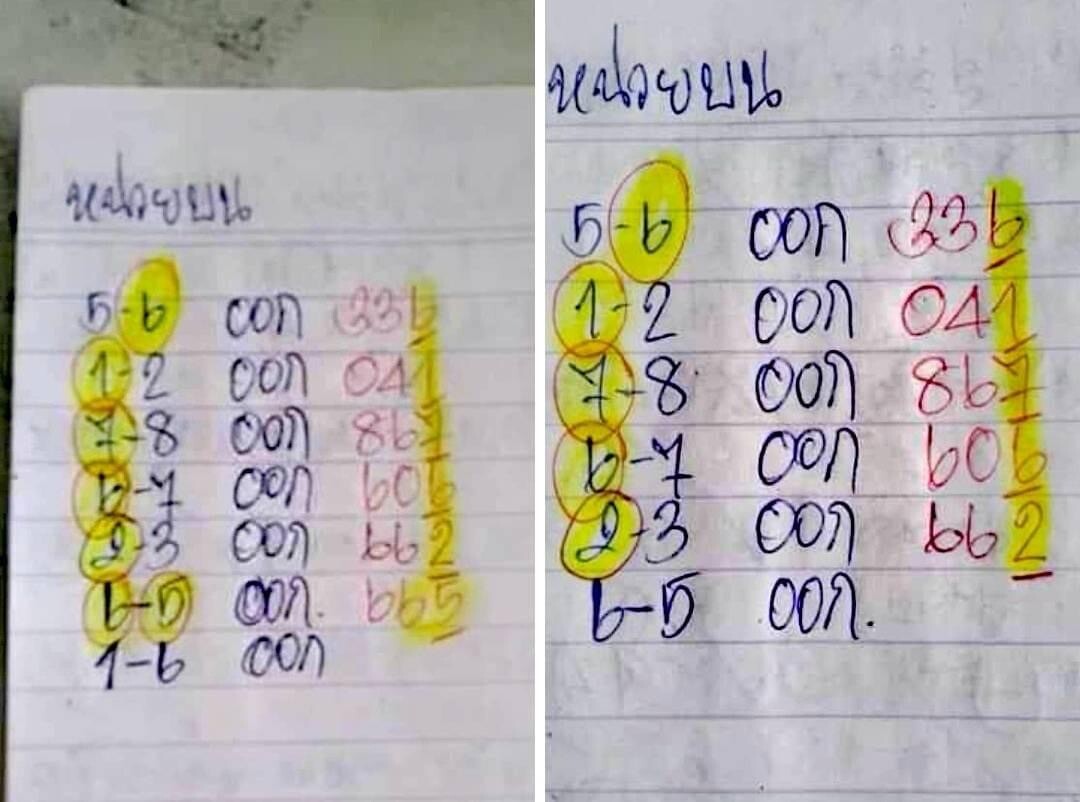 หน่วยบน
5-6 ออก 336
1-2 ออก 041
7-8 ออก 867
6-7 ออก 606
2-3 ออก 662
6-5 ออก. 665
1-6 ออก
หน่วยบน
5-6 ออก 336
1-2 ออก 041
7-8 ออก 867
6-7 ออก 606
2-3 ออก 662
6-5 ออก.